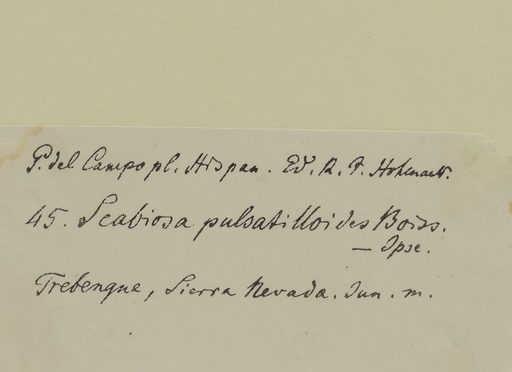 P. del Campo pl. Hispan. Ed. R. F. Hohenack.
45. Scabiosa pulsatilloides Boiss.
— Ipse.
Trebenque, Sierra Nevada. Jun. m.